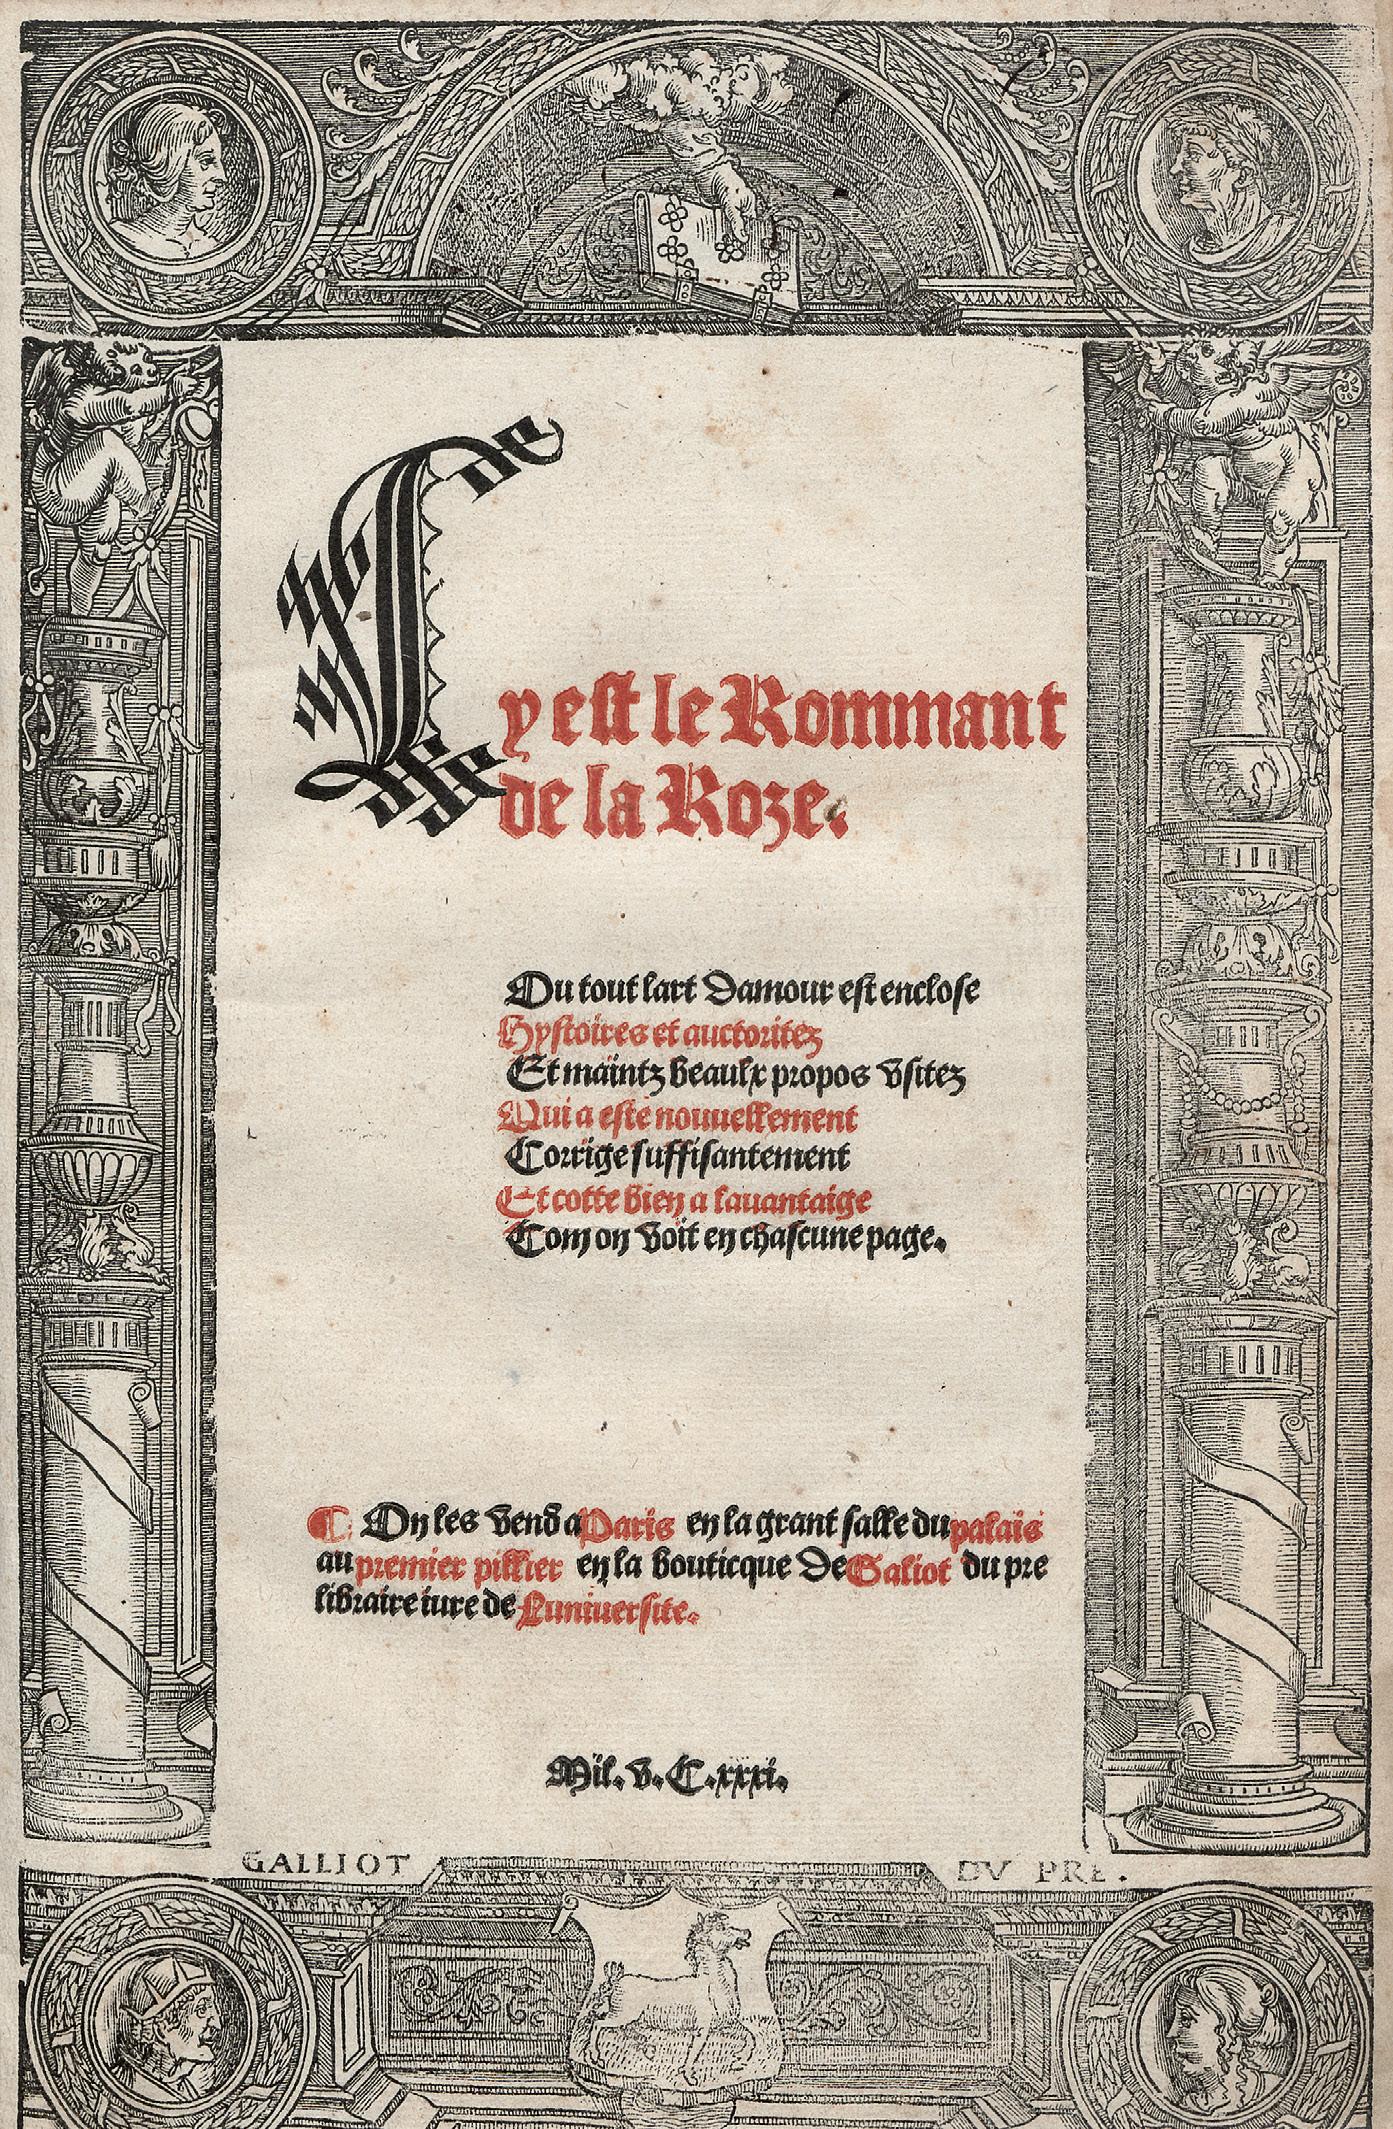 Cy est le Rommant
de la Roze.
Ou tout lart Damour est enclose
Hystoires et auctoritez
Et maintz beaulx propos vsitez
Qui a este nouuellement
Corrige suffisantement
Et cotte bien a lauantaige
Com on voit en chascune page.
¶ On les vend a Paris en la grant salle du palais
au premier pillier en la bouticque De Galiot du pre
libraire iure de Luniuersite.
Mil. v. C. xxxi.
GALLIOT DV PRE.